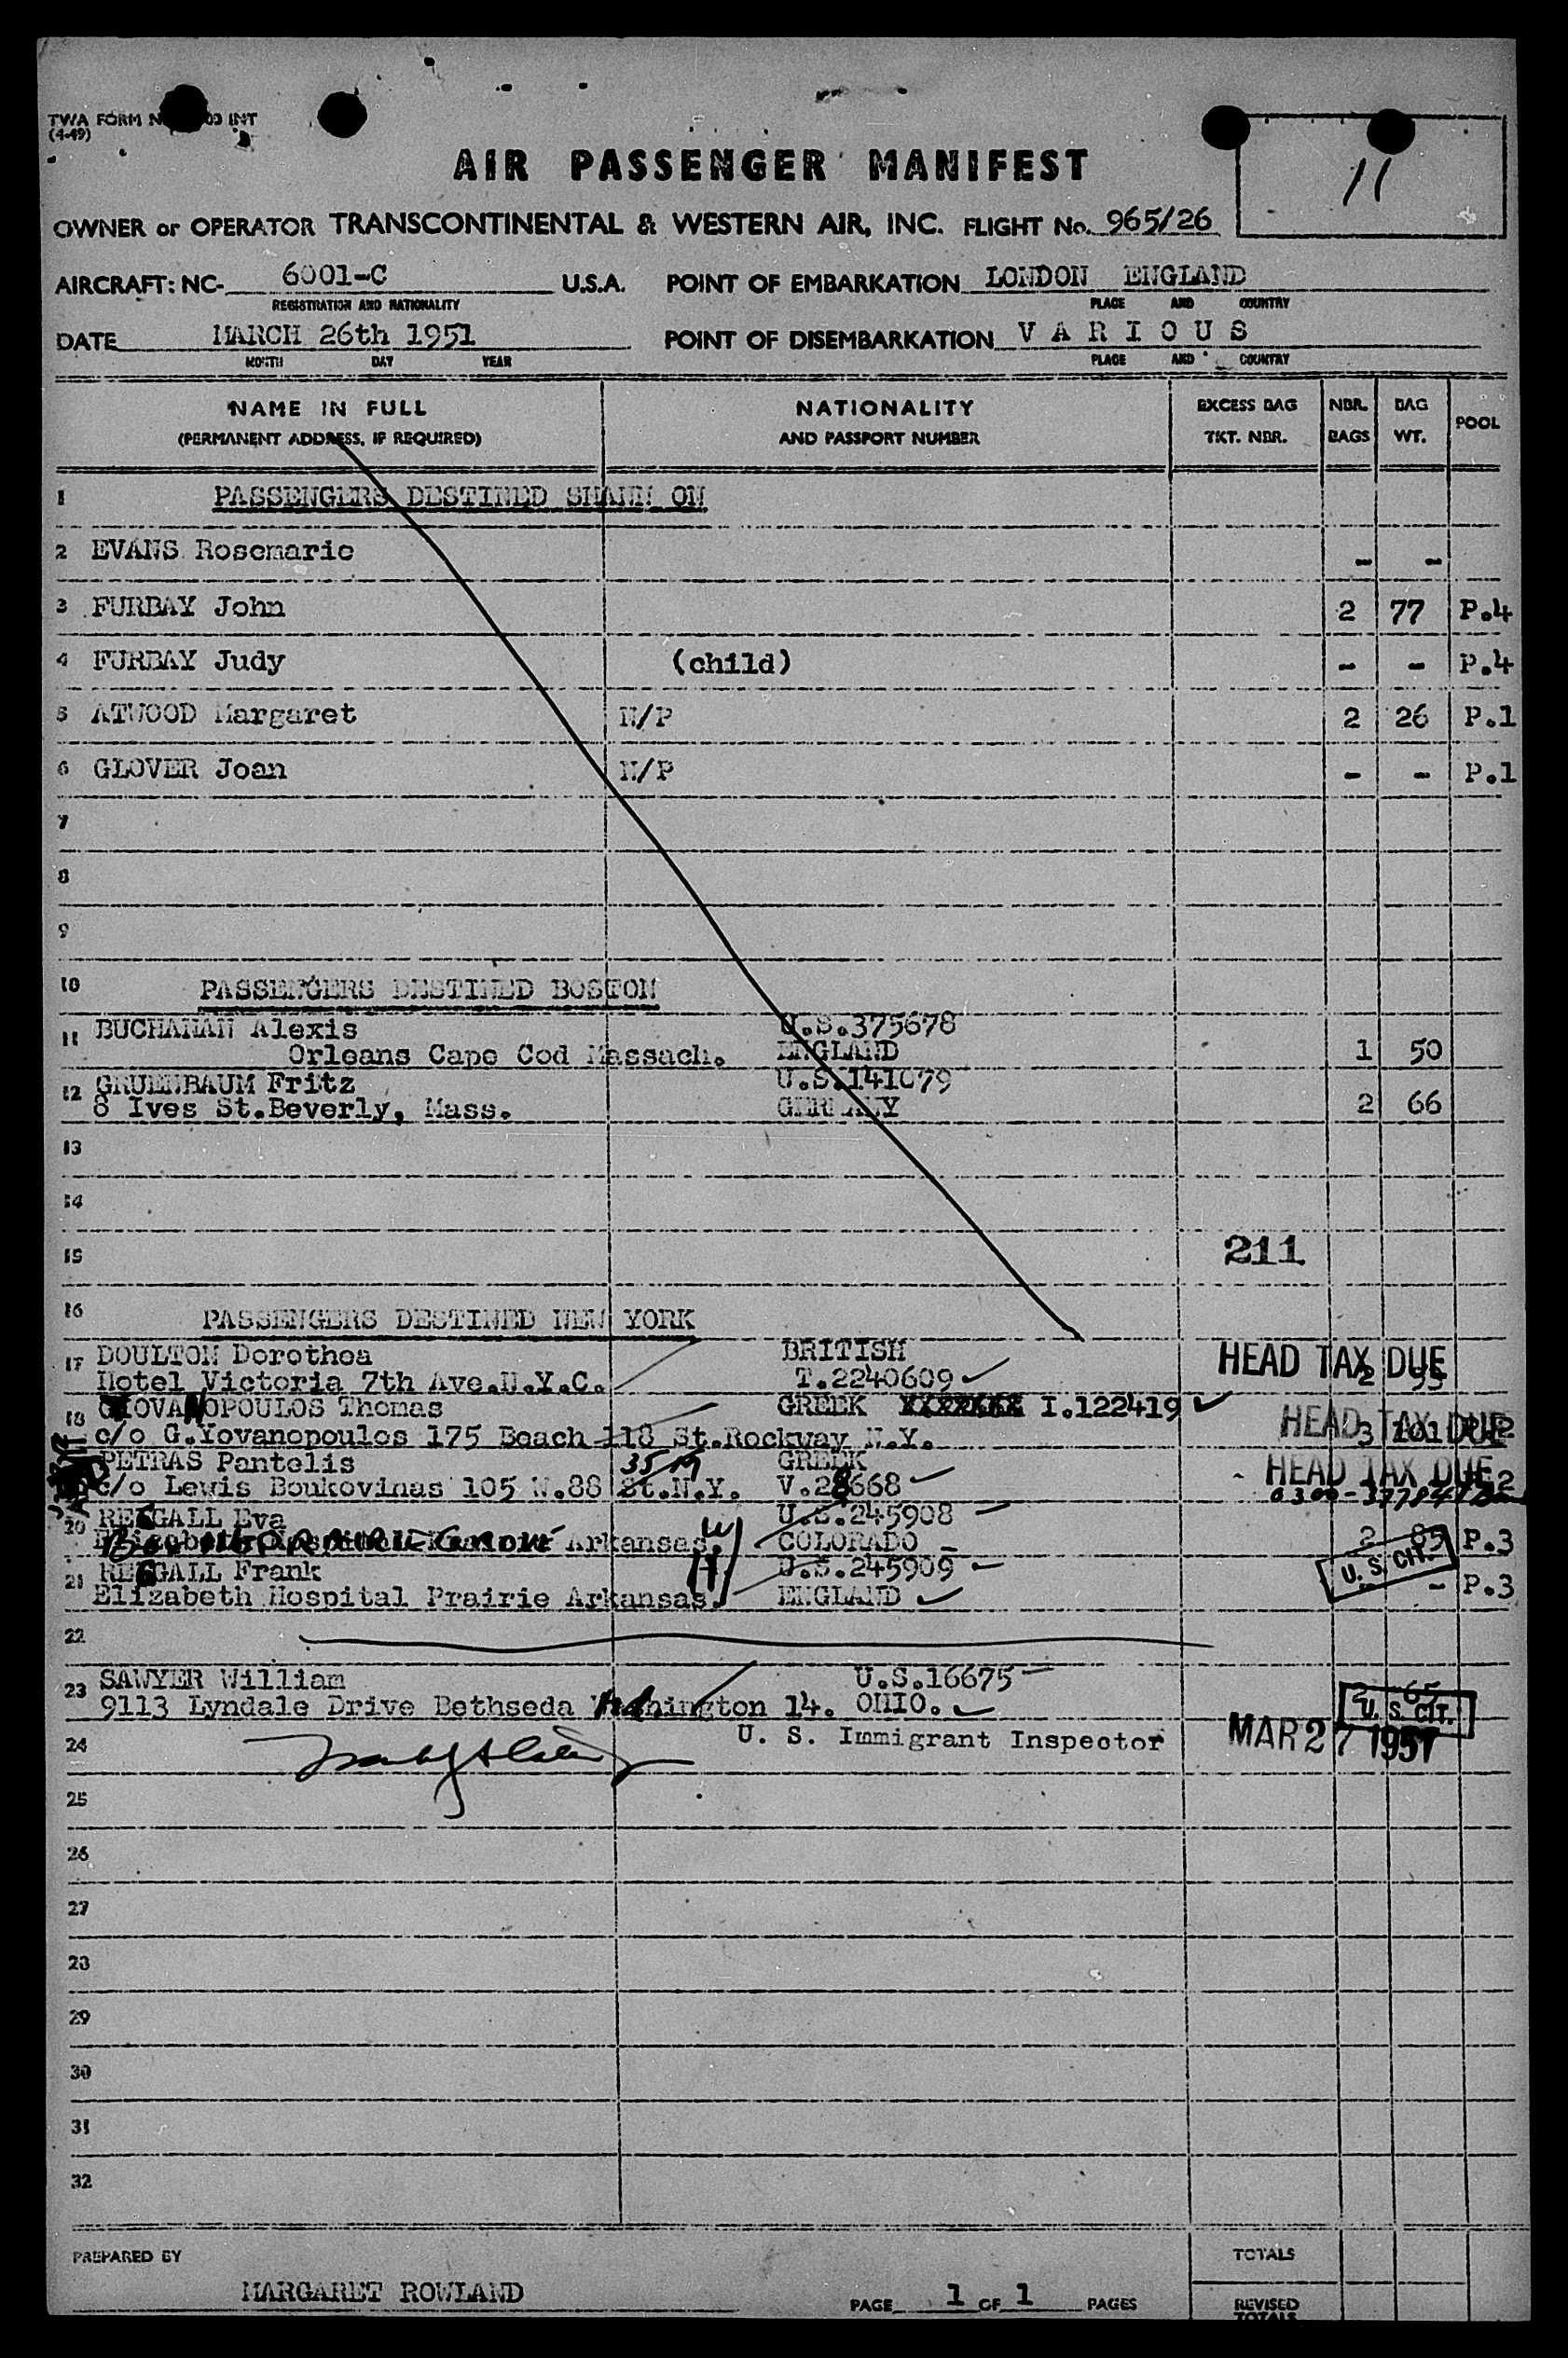 TWA FORM N 00 INT
(4-49)
11
AIR PASSENGER MANIFEST
OWNER or OPERATOR TRANSCONTINENTAL & WESTERN AIR, INC. FLIGHT No. 965/26
AIRCRAFT: NC- 6001-C U.S.A. POINT OF EMBARKATION LONDON ENGLAND
REGISTRATION AND NATIONALITY PLACE AND COUNTRY
DATE MARCH 26th 1951 POINT OF DISEMBARKATION V A R I O U S
MONTH DAY YEAR PLACE AND COUNTRY
NAME IN FULL NATIONALITY EXCESS BAG NBR. BAG POOL
(PERMANENT ADDRESS, IF REQUIRED) AND PASSPORT NUMBER TKT. NBR. BAGS WT.
1 PASSENGERS DESTINED SHANN ON
2 EVANS Rosemarie - -
3 FURBAY John 2 77 P.4
4 FURBAY Judy (child) - - P.4
5 ATWOOD Margaret N/P 2 26 P.1
6 GLOVER Joan N/P - - P.1
7
8
9
10 PASSENGERS DESTINED BOSTON
11 BUCHANAN Alexis U.S.375678
Orleans Cape Cod Massach. ENGLAND 1 50
12 GRUENBAUM Fritz U.S.141079
8 Ives St.Beverly, Mass. GERMANY 2 66
13
14
15 211
16 PASSENGERS DESTINED NEW YORK
17 DOULTON Dorothea BRITISH HEAD TAX DUE
Hotel Victoria 7th Ave.N.Y.C. T.2240609 2 95
18 OVANOPOULOS Thomas GREEK I.122419 HEAD TAX DUE
c/o G.Yovanopoulos 175 Beach 118 St.Rockway N.Y. 3 101
PETRAS Pantelis 35 M GREEK HEAD TAX DUE
c/o Lewis Boukovinas 105 W.88 St.N.Y. V.28668
20 GALL Eva U.S.245908
Arkansas. COLORADO 2 85 P.3
21 GALL Frank U.S.245909 U. S. CIT.
Elizabeth Hospital Prairie Arkansas. ENGLAND - - P.3
22
23 SAWYER William U.S.16675
9113 Lyndale Drive Bethseda 14. OHIO. 2 65 U. S. CIT.
24 U. S. Immigrant Inspector MAR 27 1951
25
26
27
28
29
30
31
32
PREPARED BY MARGARET ROWLAND PAGE 1 OF 1 PAGES
TOTALS
REVISED
TOTALS